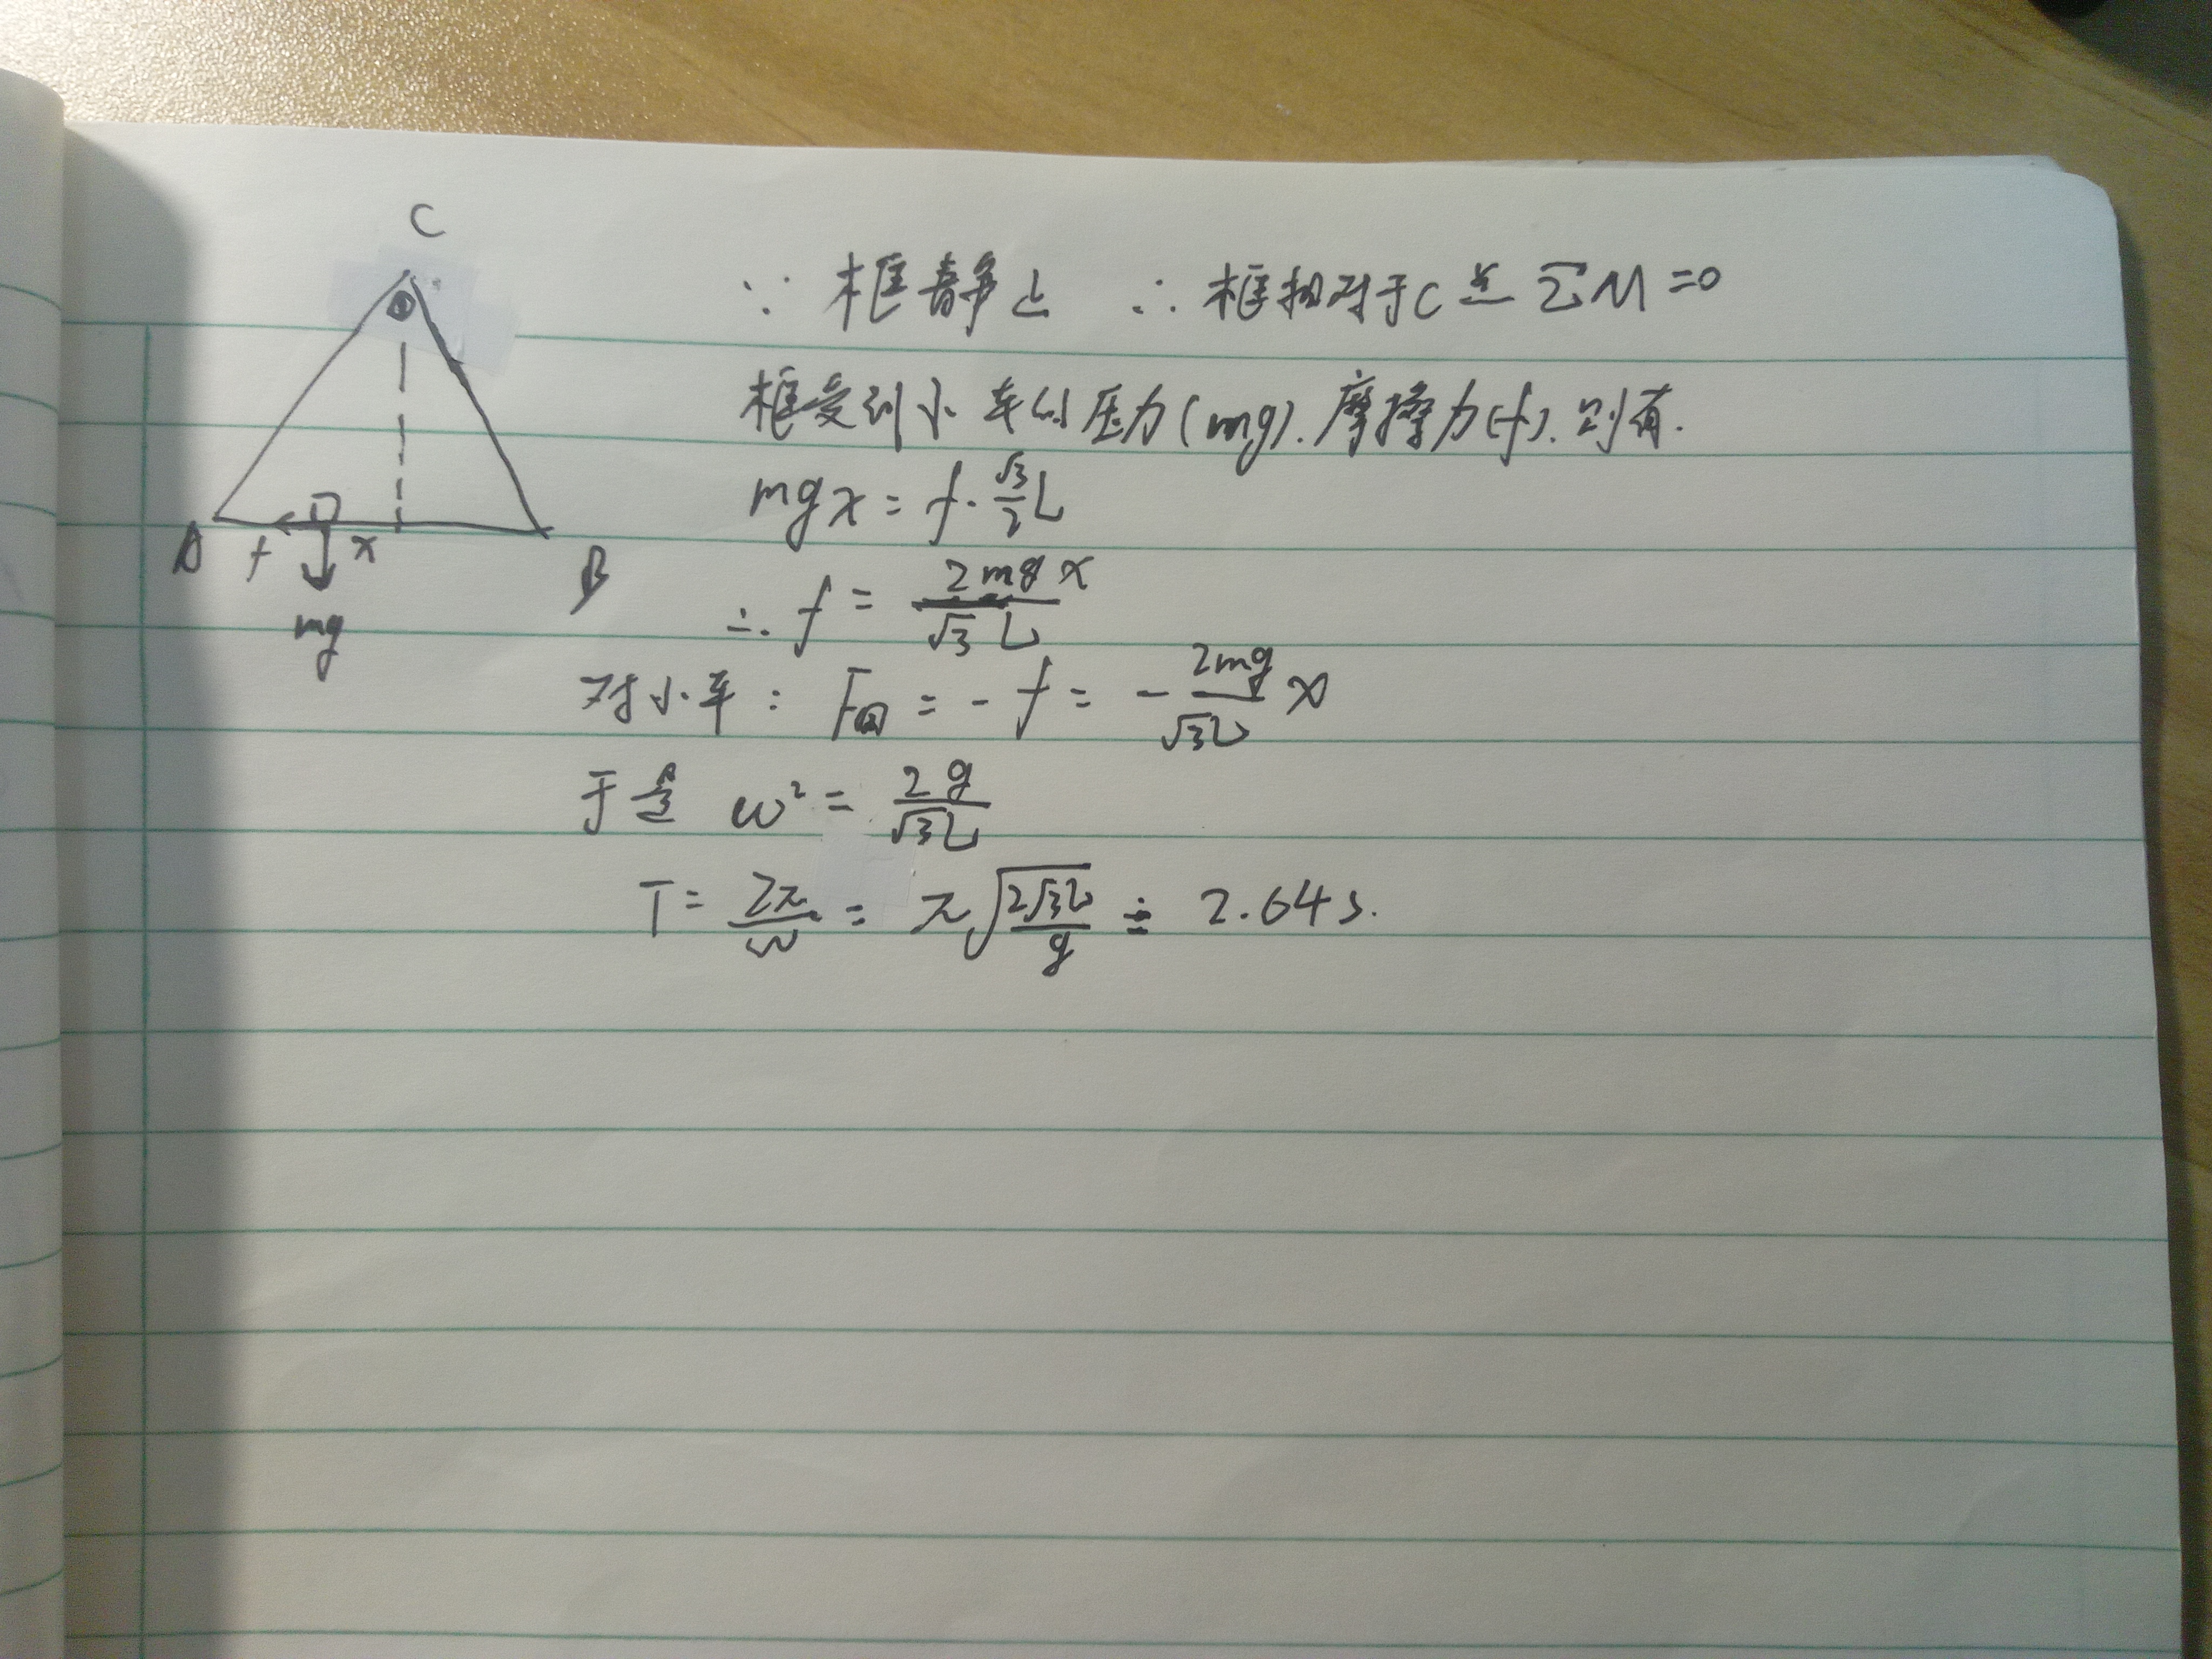 C
∵ 框静止 ∴ 框相对于C点 ΣM=0
框受到小车的压力(mg).摩擦力(f).则有.
mgx = f·√3/2 L
A f x B
mg
∴ f = 2mgx/√3L
对小车: F回 = -f = -2mg/√3L x
于是 ω² = 2g/√3L
T = 2π/ω = π√(2√3L/g) ≐ 2.64s.